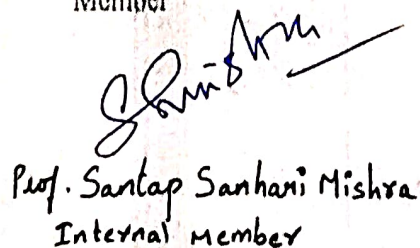 Member
Prof. Santap Sanhari Mishra
Internal Member